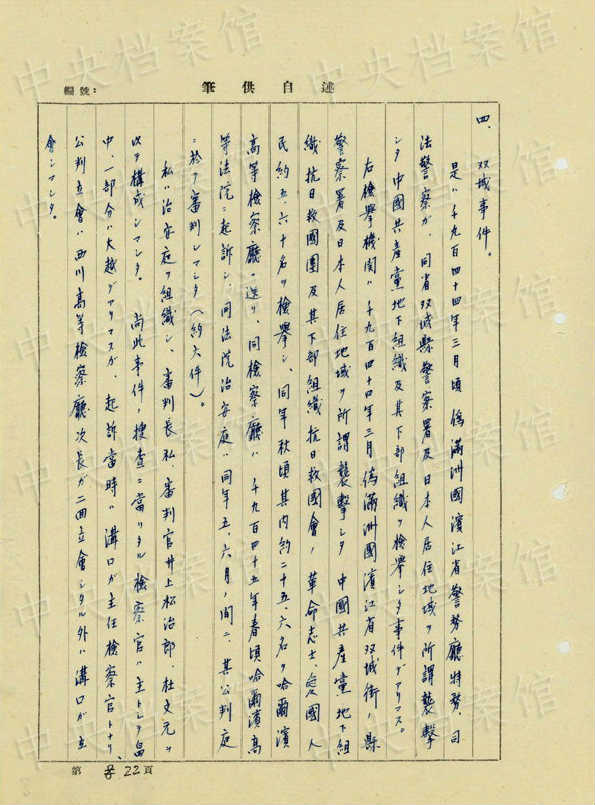 述自供筆
編號:
四、双城事件。
是ハ千九百四十四年三月頃偽滿洲國濱江省警務廳特務、司
法警察ガ、同省双城縣警察署及日本人居住地域ヲ所謂襲撃
シタ中國共産黨地下組織及其下部組織ヲ檢擧シタ事件デアリマス。
右檢擧機関ハ千九百四十四年三月偽滿洲國濱江省双城街ノ縣
警察署及日本人居住地域ヲ所謂襲撃シタ中國共産黨地下組
織抗日救國團及其下部組織抗日救國會ノ革命志士、愛國人
民約五、六十名ヲ檢擧シ、同年秋頃其内約二十五、六名ヲ哈爾濱
高等檢察廳ニ送リ、同檢察廳ハ千九百四十五年春頃哈爾濱高
等法院ニ起訴シ、同法院治安庭ハ同年五、六月ノ間ニ、其公判庭
ニ於テ審判シマシタ(約六件)。
私ハ治安庭ヲ組織シ、審判長私、審判官井上松治郎、杜文元ヲ
以テ構成シマシタ。尚此事件ノ搜査ニ當リタル檢察官ハ主トシテ畠
中、一部分ハ大越デアリマスガ、起訴當時ハ溝口ガ主任檢察官トナリ、
公判立會ハ西川高等檢察廳次長ガ一回立會シタル外ハ溝口ガ立
會シマシタ。
第 22頁
中央档案馆